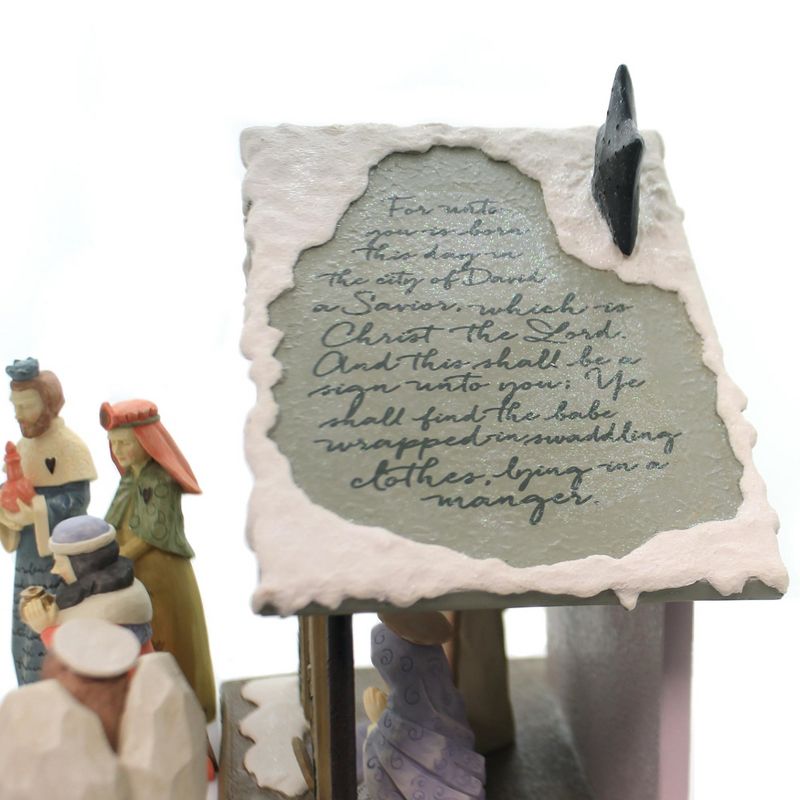 For unto
you is born
this day in
the city of David
a Savior, which is
Christ the Lord.
And this shall be a
sign unto you; Ye
shall find the babe
wrapped in swaddling
clothes, lying in a
manger.